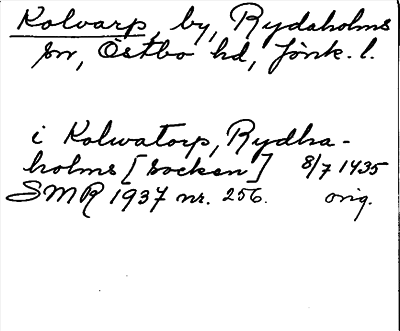 Kolvarp, by, Rydaholms
sn, Östbo hd, Jönk. l.
i Kolwatorp, Rydha-
holms [socken] 8/7 1435
SMR 1937 nr. 256. orig.